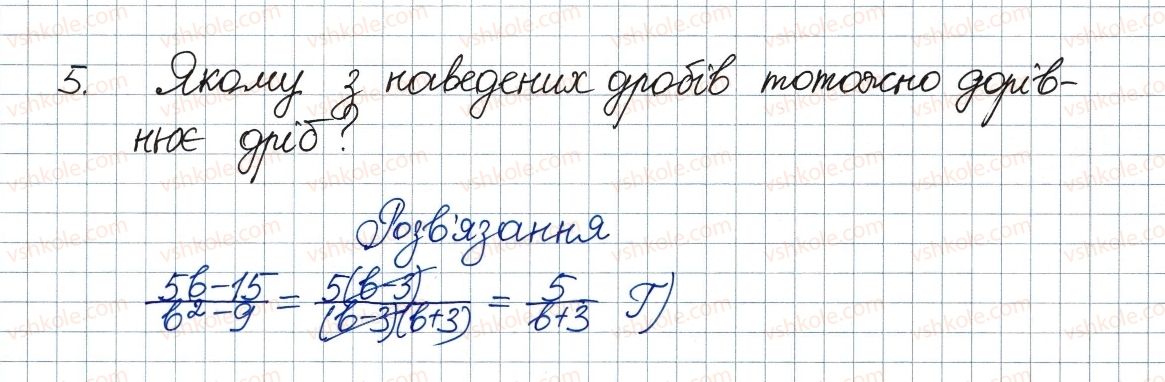 5. Якому з наведених дробів тотожно дорів-
нює дріб?
Розв'язання
(5b-15)/(b²-9) = 5(b-3)/((b-3)(b+3)) = 5/(b+3) Г)